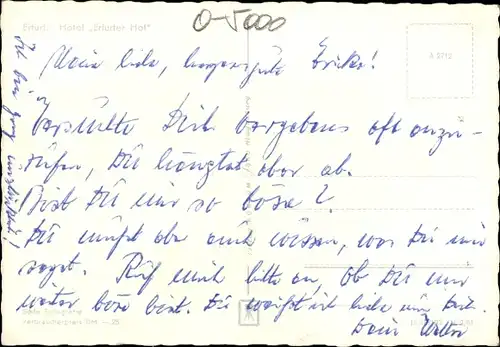 O-5000
Erfurt. Hotel „Erfurter Hof"
A 2712
Meine liebe, herzensgute Ericka!
Versuchte Dich vergebens oft anzu-
rufen, Du hängtest aber ab.
Bist Du mir so böse?
Du mußt aber auch wissen, was Du mir
sagst. Ruf mich bitte an, ob Du mir
weiter böse bist. Du weißt ich liebe nur Dich.
Dein Walter
Ich bin ganz unglücklich!
Verbraucherpreis MDN